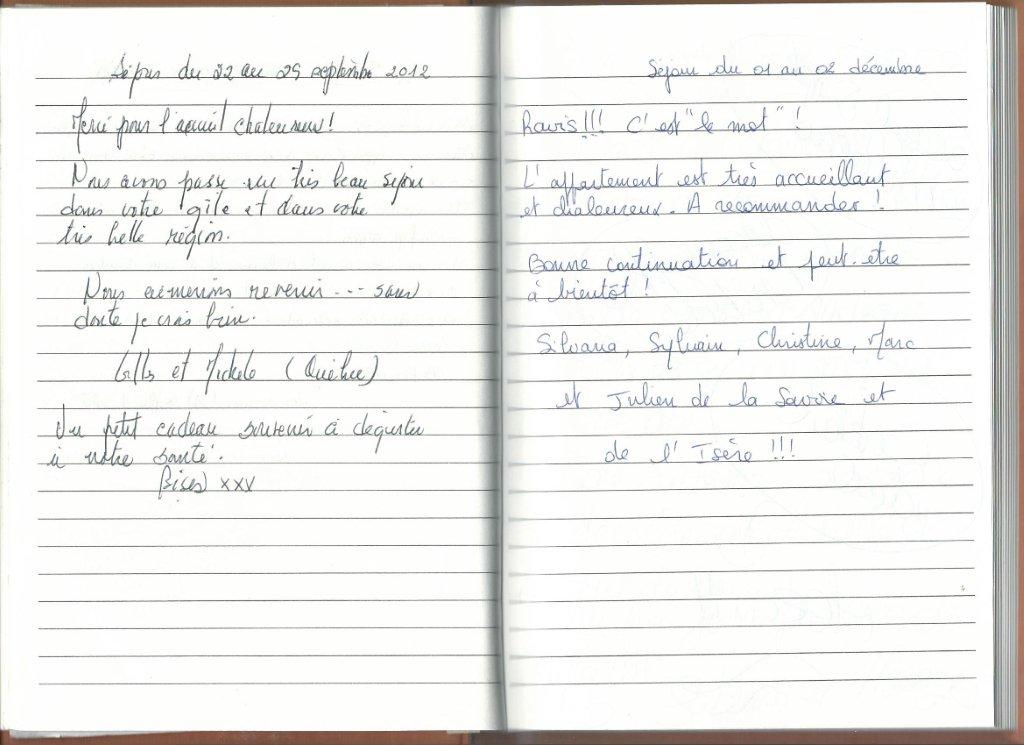 Séjour du 22 au 29 septembre 2012
Merci pour l'accueil chaleureux!
Nous avons passé un très beau séjour
dans votre gîte et dans votre
très belle région.
Nous aimerions revenir --- sans
doute je crois bien.
Gilles et Michèle (Québec)
Un petit cadeau souvenir à déguster
à votre santé.
Bises xxx
Séjour du 01 au 02 décembre
Ravis!!! C'est "le mot" !
L'appartement est très accueillant
et chaleureux. A recommander !
Bonne continuation et peut-être
à bientôt !
Silvana, Sylvain, Christine, Marc
et Julien de la Savoie et
de l'Isère !!!